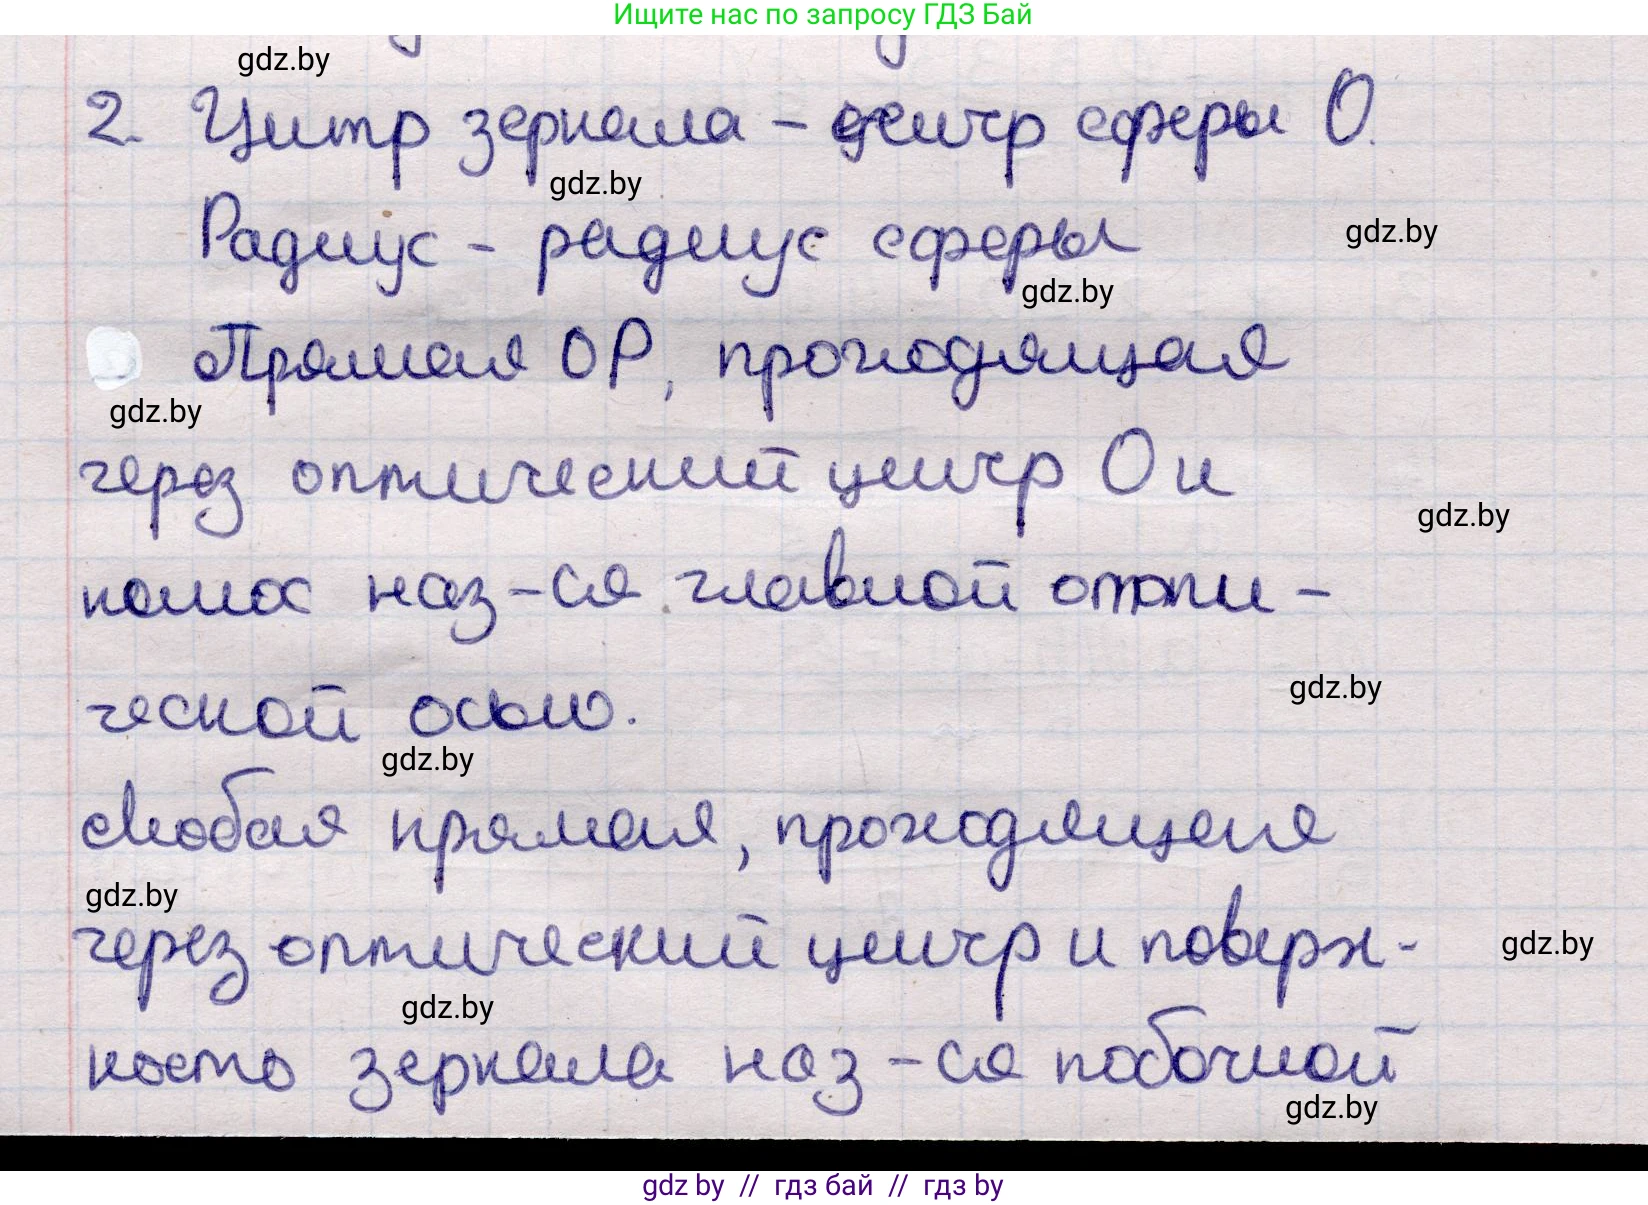 Ищите нас по запросу ГДЗ Бай
gdz.by
2. Центр зеркала – центр сферы О.
gdz.by
Радиус – радиус сферы
gdz.by
gdz.by
Прямая ОР, проходящая
gdz.by
через оптический центр О и
gdz.by
полюс наз-ся главной опти-
ческой осью.
gdz.by
gdz.by
Любая прямая, проходящая
gdz.by
через оптический центр и поверх-
gdz.by
gdz.by
ность зеркала наз-ся побочной
gdz.by
gdz by // гдз бай // гдз by